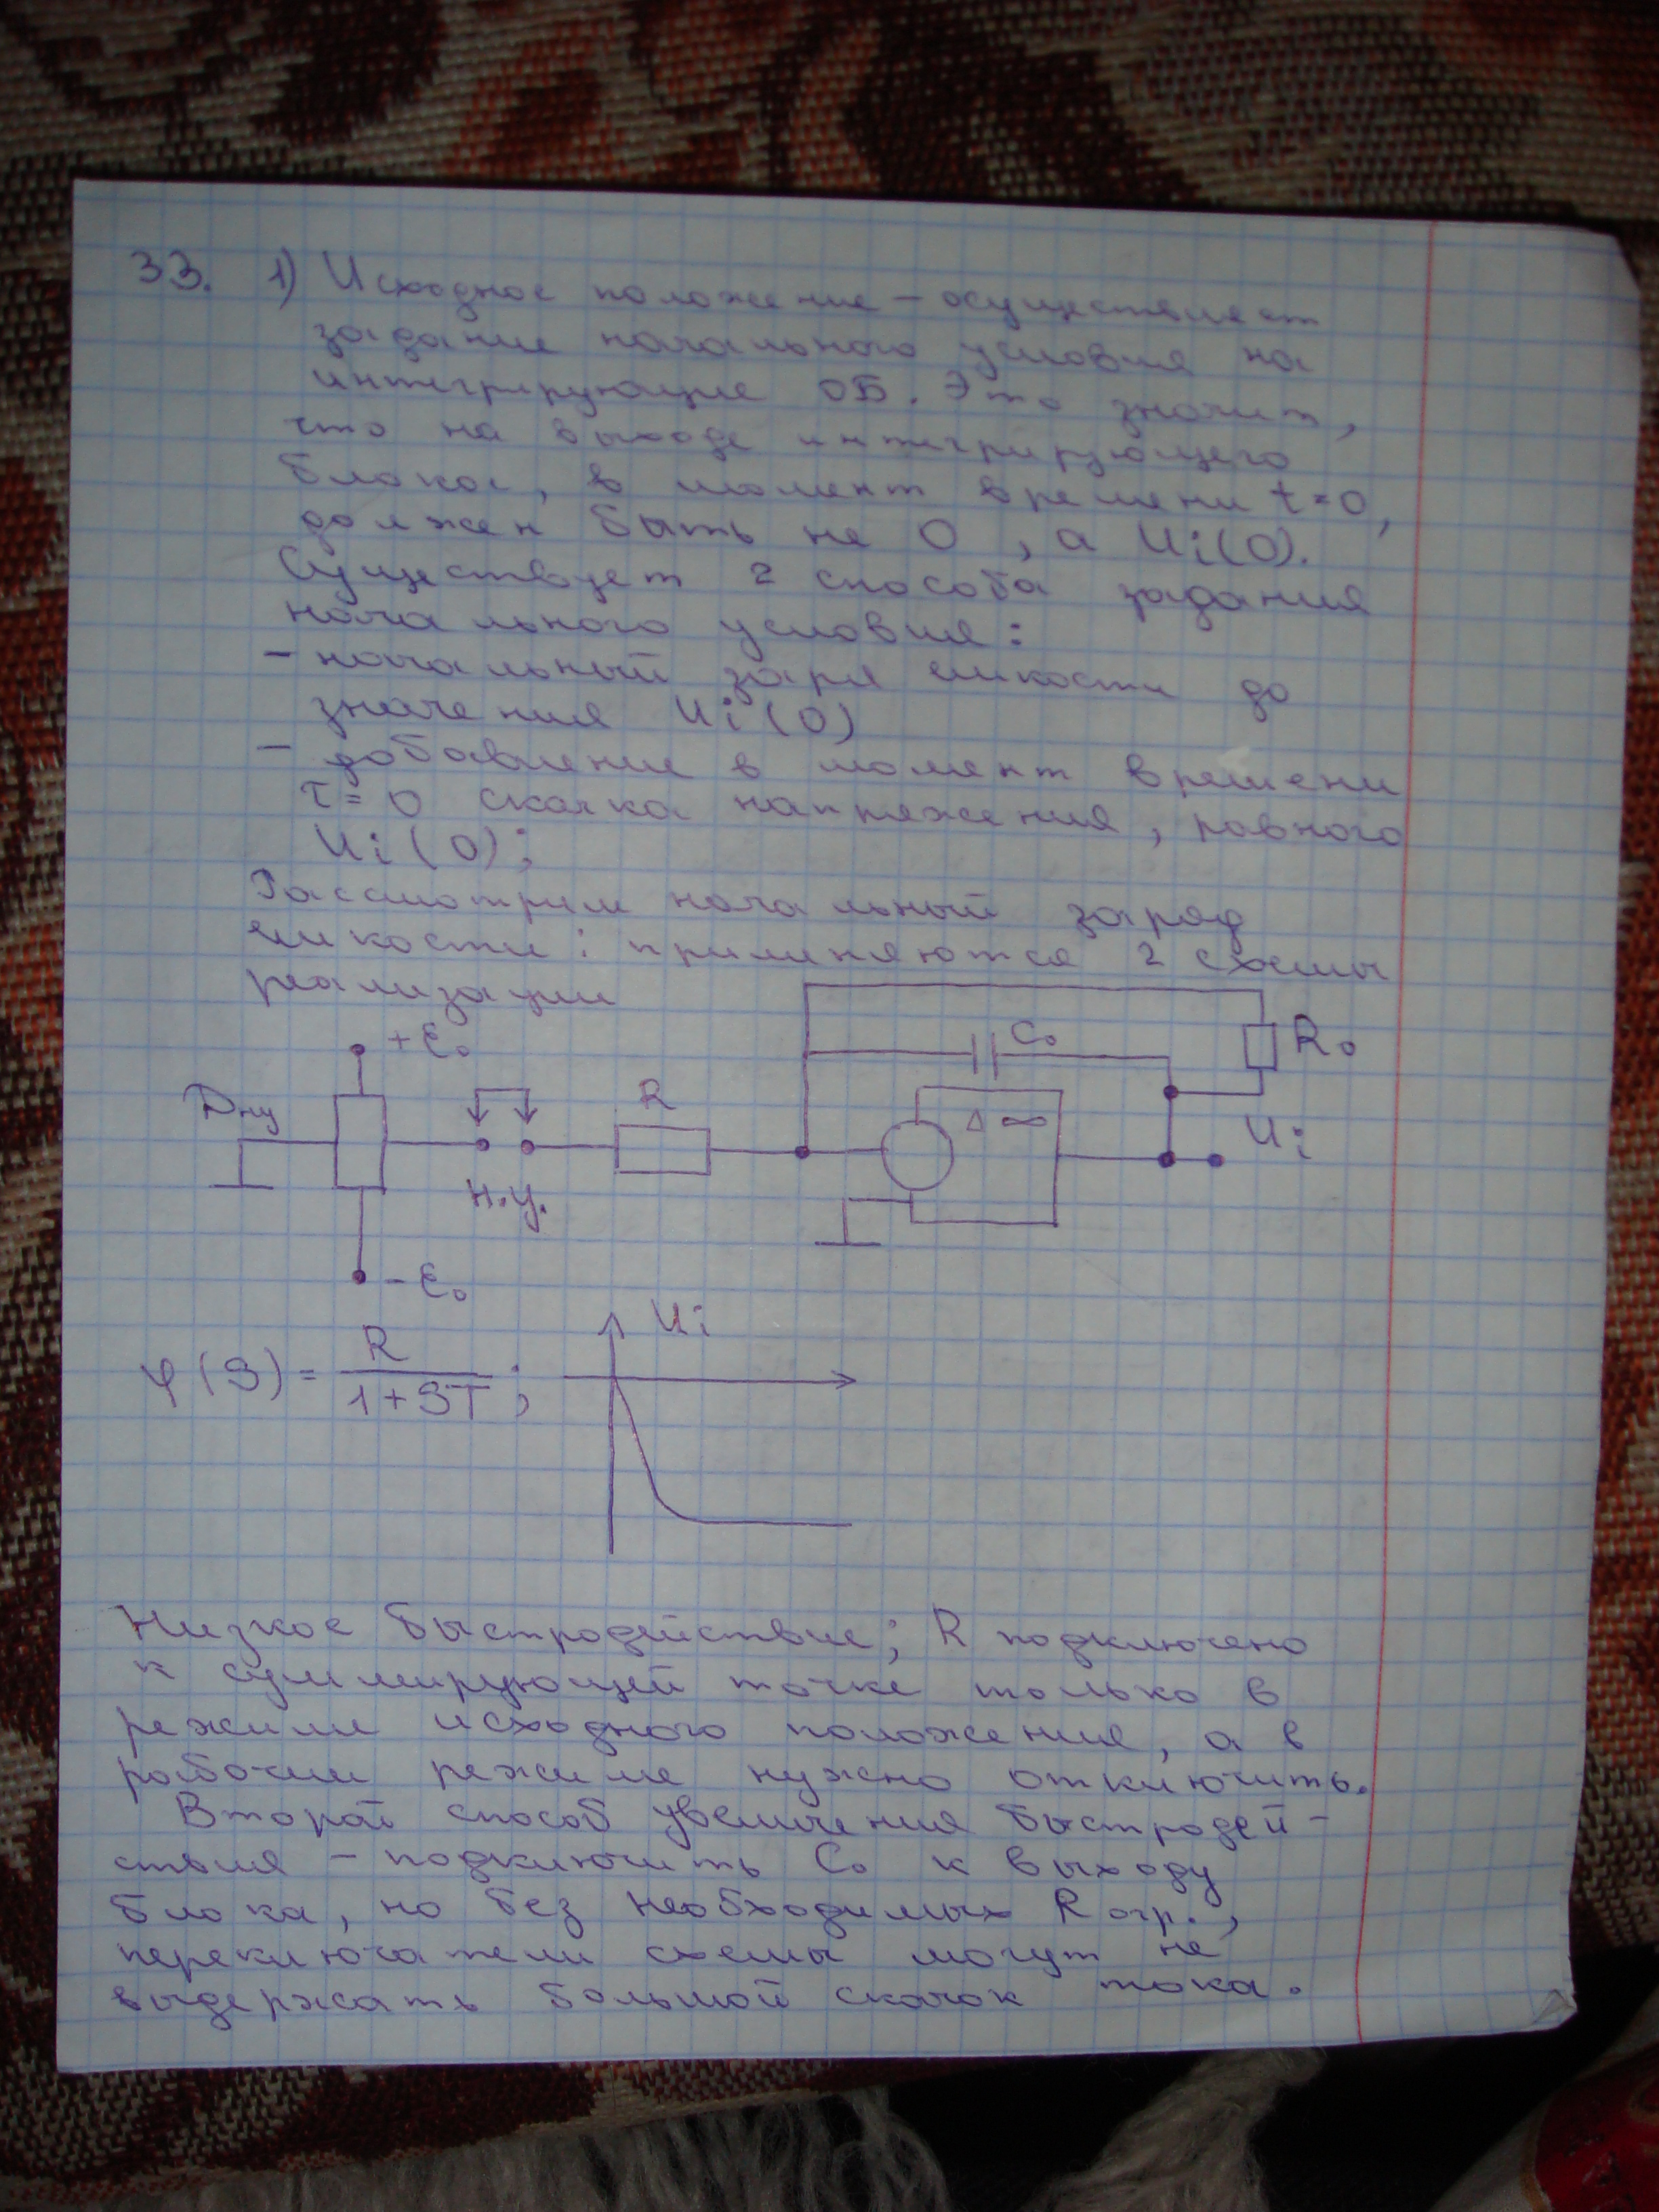 33. 1) Исходное положение – осуществляет
задание начального условия на
интегрирующие ОБ. Это значит,
что на выходе интегрирующего
блока, в момент времени t=0,
должен быть не 0, а Ui(0).
Существует 2 способа задания
начального условия:
– начальный заряд емкости до
значения Ui(0)
– добавление в момент времени
τ=0 скачка напряжения, равного
Ui(0);
Рассмотрим начальный заряд
емкости: применяются 2 схемы
реализации
+E₀
C₀
R₀
Dну
R
▷ ∞
Ui
н.у.
-E₀
φ(S) = R / (1+ST);
Ui
Низкое быстродействие; R подключено
к суммирующей точке только в
режиме исходного положения, а в
рабочем режиме нужно отключить.
Второй способ увеличения быстродей-
ствия – подключить C₀ к выходу
блока, но без необходимых R огр.,
переключатели схемы могут не
выдержать большой скачок тока.